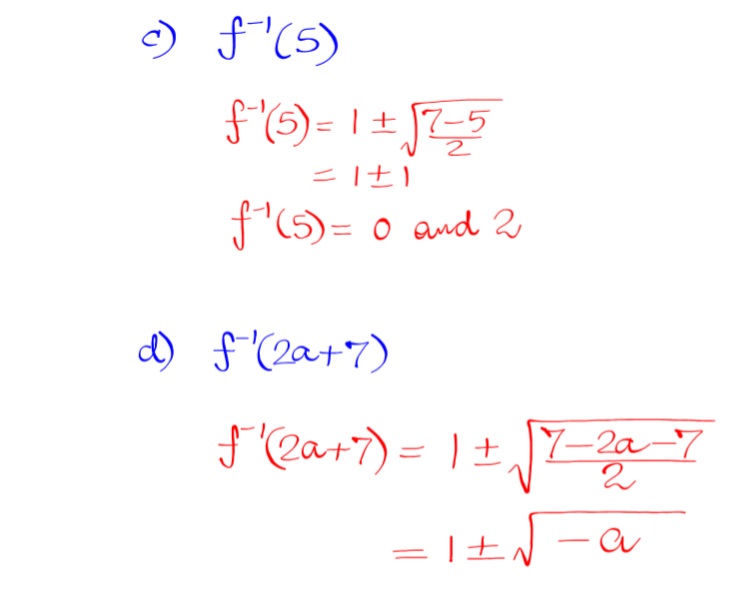 c) f⁻¹(5)
f⁻¹(5) = 1 ± √((7-5)/2)
= 1 ± 1
f⁻¹(5) = 0 and 2
d) f⁻¹(2a+7)
f⁻¹(2a+7) = 1 ± √((7-2a-7)/2)
= 1 ± √(-a)